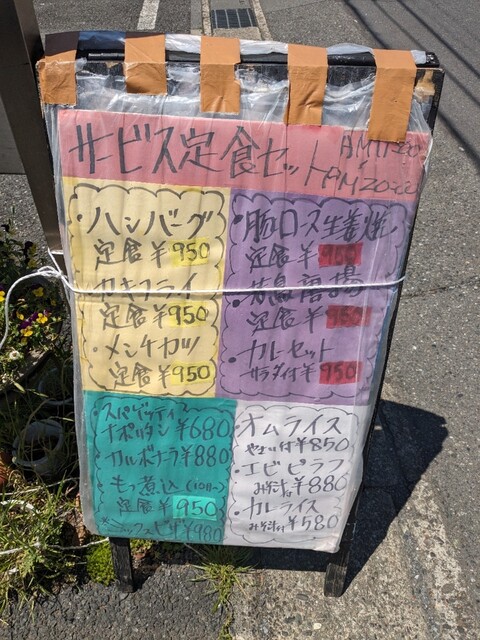 サービス定食セット AM11:00
PM20:00
・ハンバーグ
定食¥950
・カキフライ
定食¥950
・メンチカツ
定食¥950
・豚ロース生姜焼
定食¥950
・若鳥唐揚
定食¥950
・カレーセット
サラダ付¥950
・スパゲッティ
ナポリタン¥680
カルボナーラ¥880
もつ煮込
定食¥950
ミックスピザ¥980
オムライス
付¥850
・エビピラフ
みそ汁付¥880
・カレーライス
みそ汁付¥580